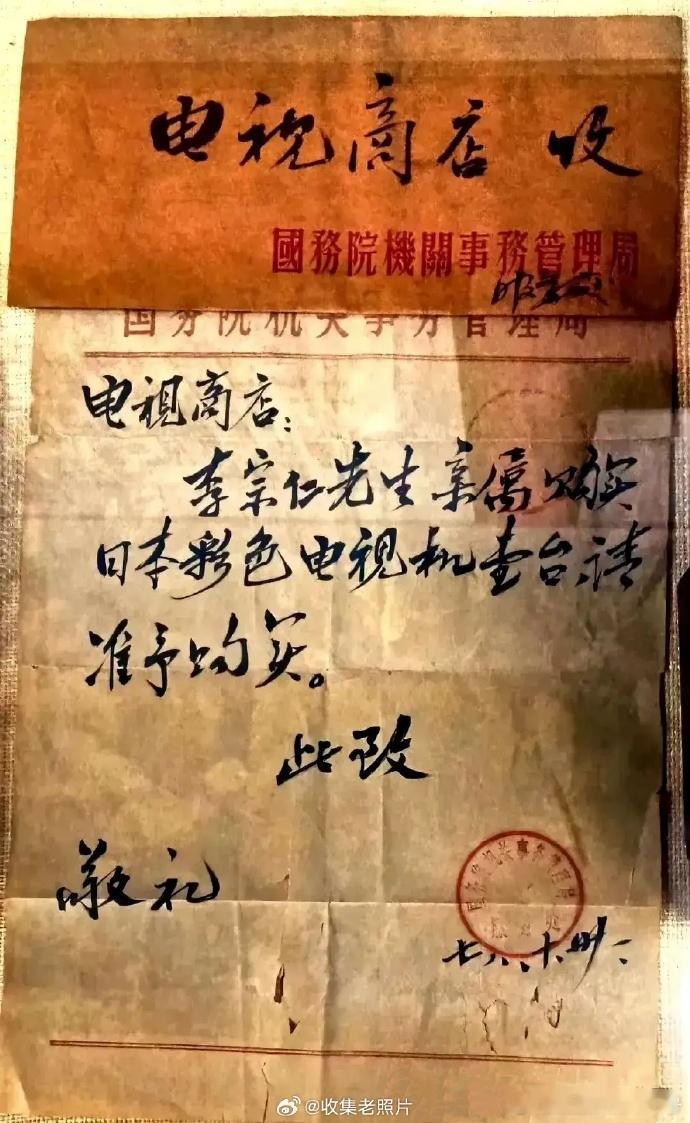 电视商店 收
國務院機關事務管理局
国务院机关事务管理局
电视商店：
李宗仁先生亲属购买
日本彩色电视机壹台，请
准予购买。
此致
敬礼
国务院机关事务管理局
七八、十、
@收集老照片